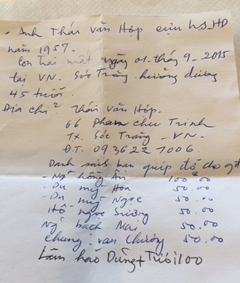 - Anh Thái văn Hóp cựu hs HD
năm 1957.
Con trai mất ngày 01-tháng 9-2015
tại VN. Sóc Trăng hương dương
45 tuổi.
Địa chỉ: Thái văn Hóp.
66 Phan chu Trinh
TX. Sóc Trăng - VN.
Đ.T. 0936227006.
Danh sách bạn giúp đỡ cho gđ
- Ng hồng Ân 100.00
- Dư mỹ Hoa 50.00
- Dư mỹ Ngọc 50.00
Hồ ngọc Sương 50.00
Ng bạch Mai 50.00
Chung văn Chương 50.00
Lâm hảo Dũng + Trúc 100